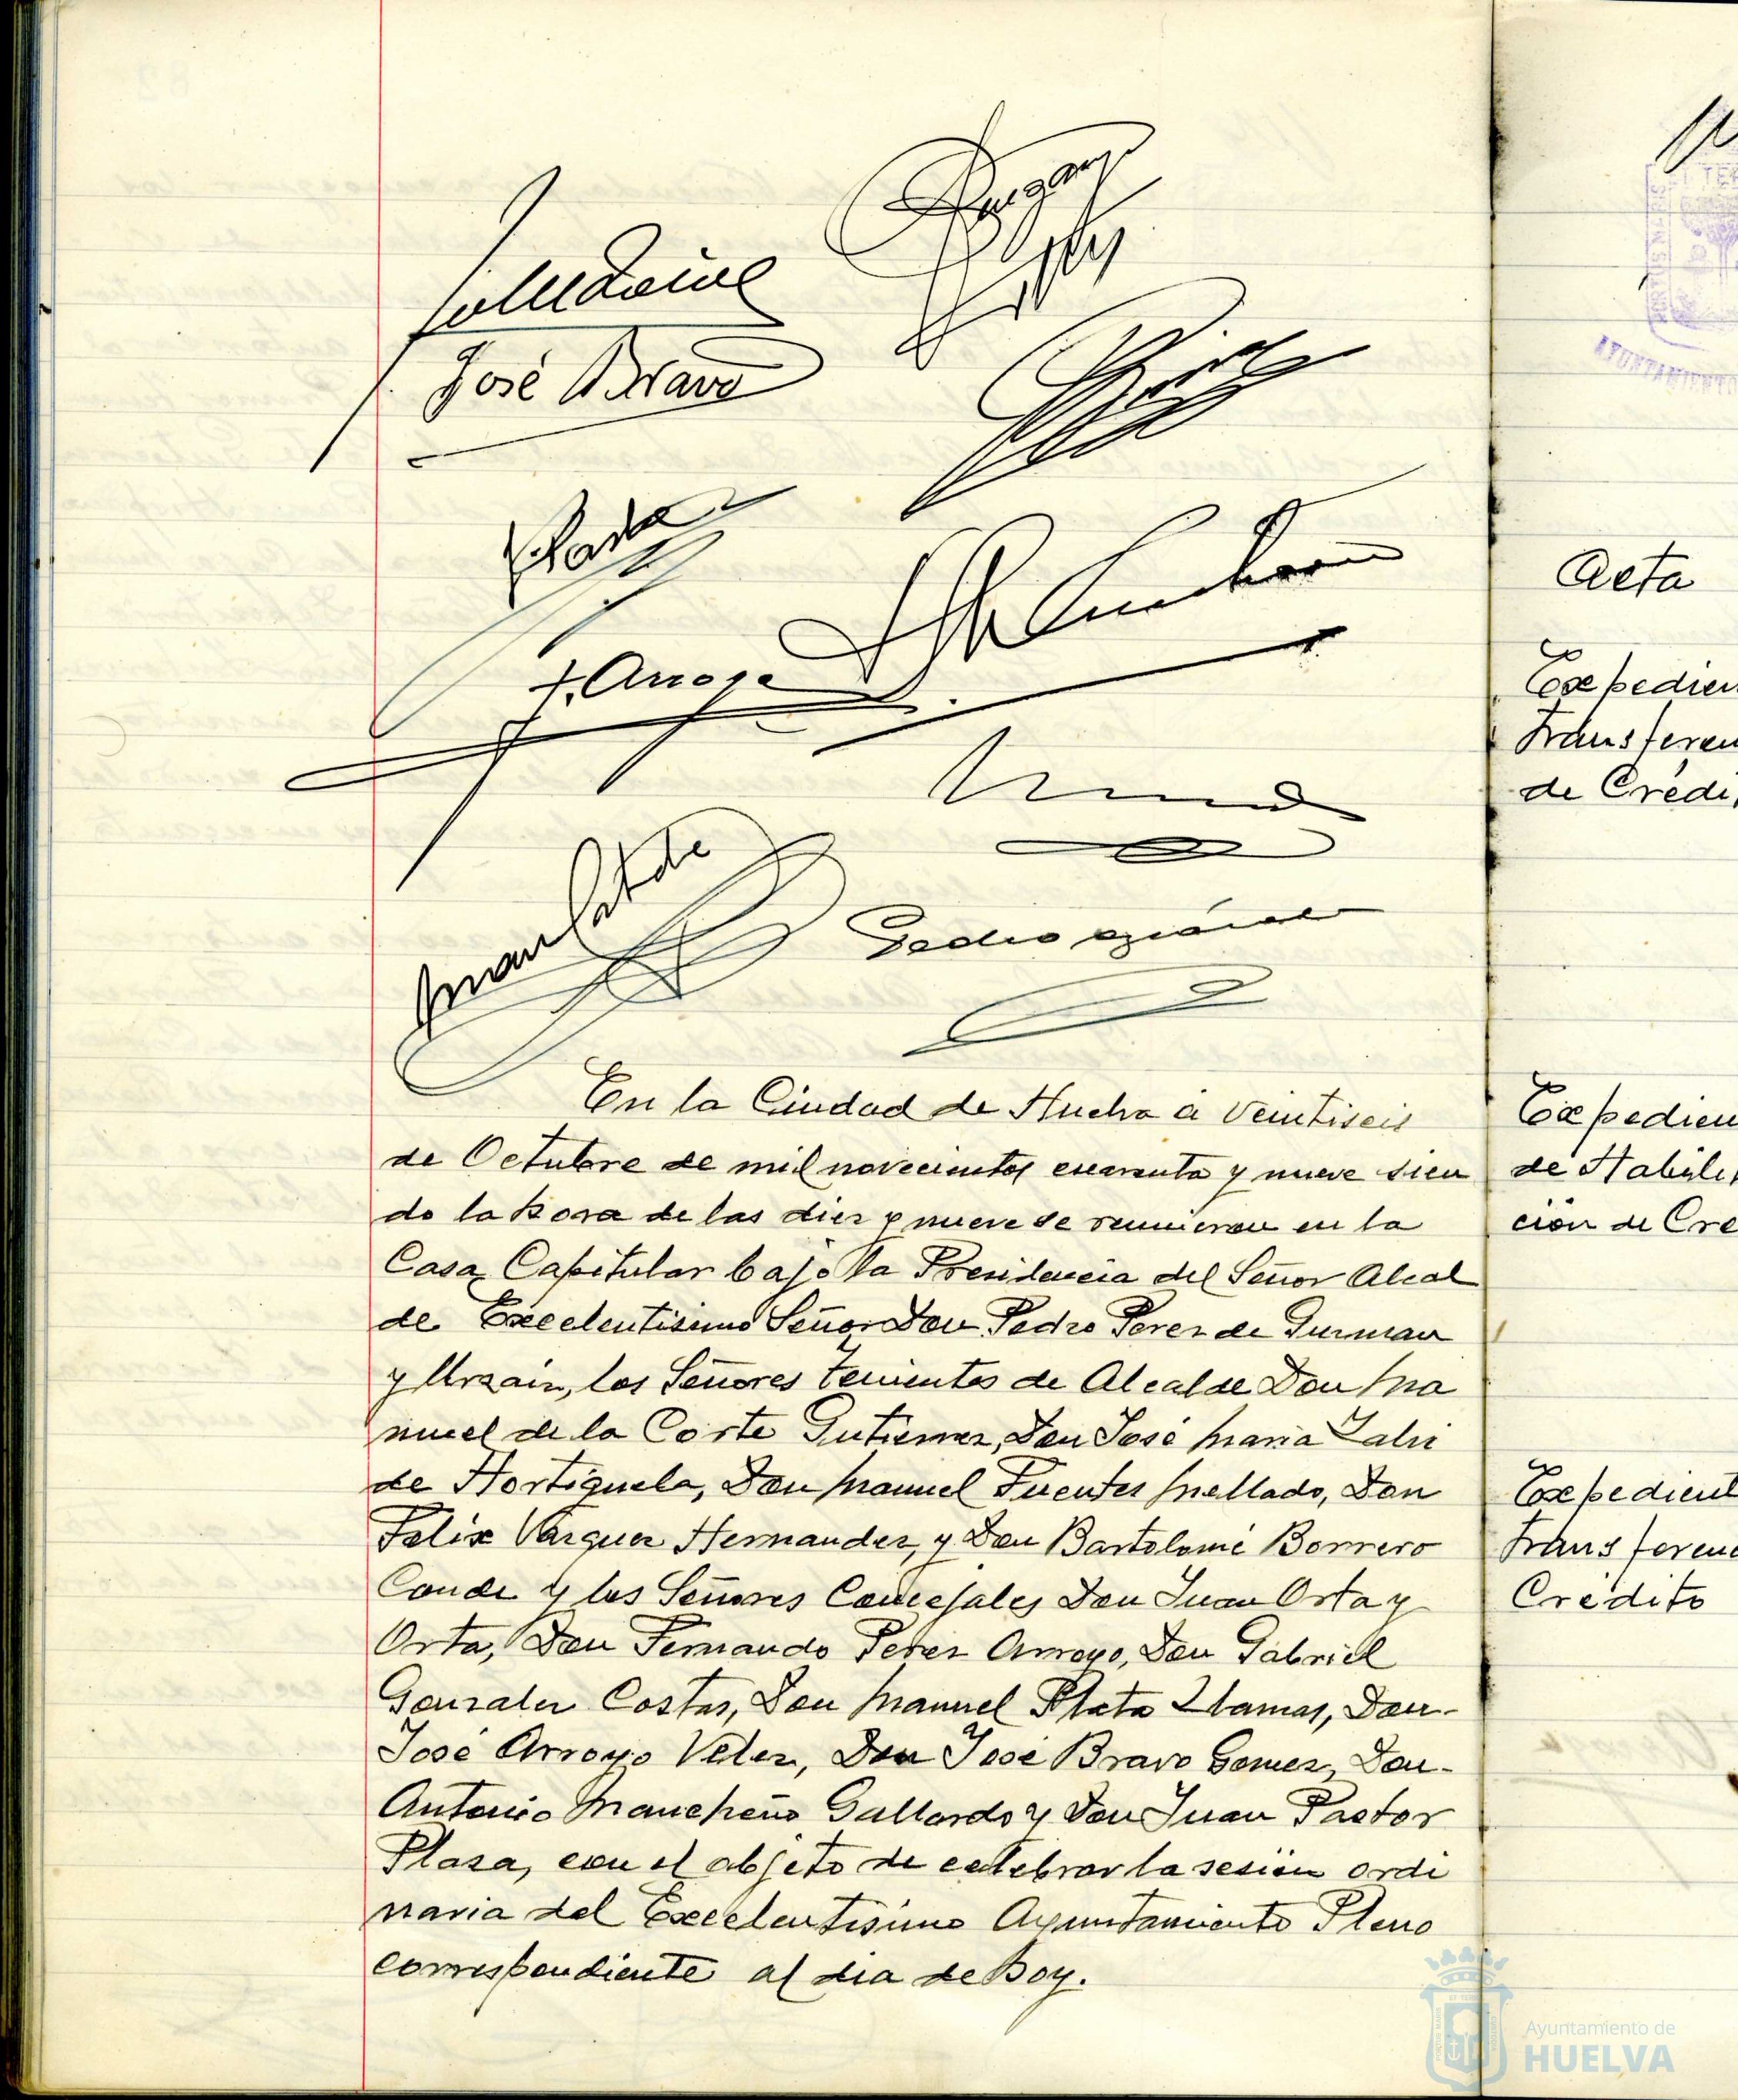 José Bravo
F. Arroyo
En la Ciudad de Huelva a veintiseis
de Octubre de mil novecientos cuarenta y nueve sien
do la hora de las diez y nueve se reunieron en la
Casa Capitular bajo la Presidencia del Señor Alcal
de Excelentisimo Señor Don Pedro Perez de Guzman
y Urzaiz, los Señores tenientes de Alcalde Don Ma
nuel de la Corte Gutierrez, Don José Maria
de Hortiguela, Don Manuel Fuentes Mellado, Don
Felix Vazquez Hernandez, y Don Bartolomé Borrero
Conde y los Señores Concejales Don Juan Orta y
Orta, Don Fernando Perez Arroyo, Don Gabriel
Gonzalez Costas, Don Manuel Plata Llamas, Don-
José Arroyo Velez, Don José Bravo Gomez, Don-
Antonio Mancheño Gallardo y Don Juan Pastor
Plaza, con el objeto de celebrar la sesión ordi
naria del Excelentisimo Ayuntamiento Pleno
correspondiente al dia de hoy.
AYUNTAMIENTO
Acta
Expedien
Transferen
de Credi
Expedien
de Habili
ción de Cre
Expedient
Transferenc
Crédito
Ayuntamiento de
HUELVA